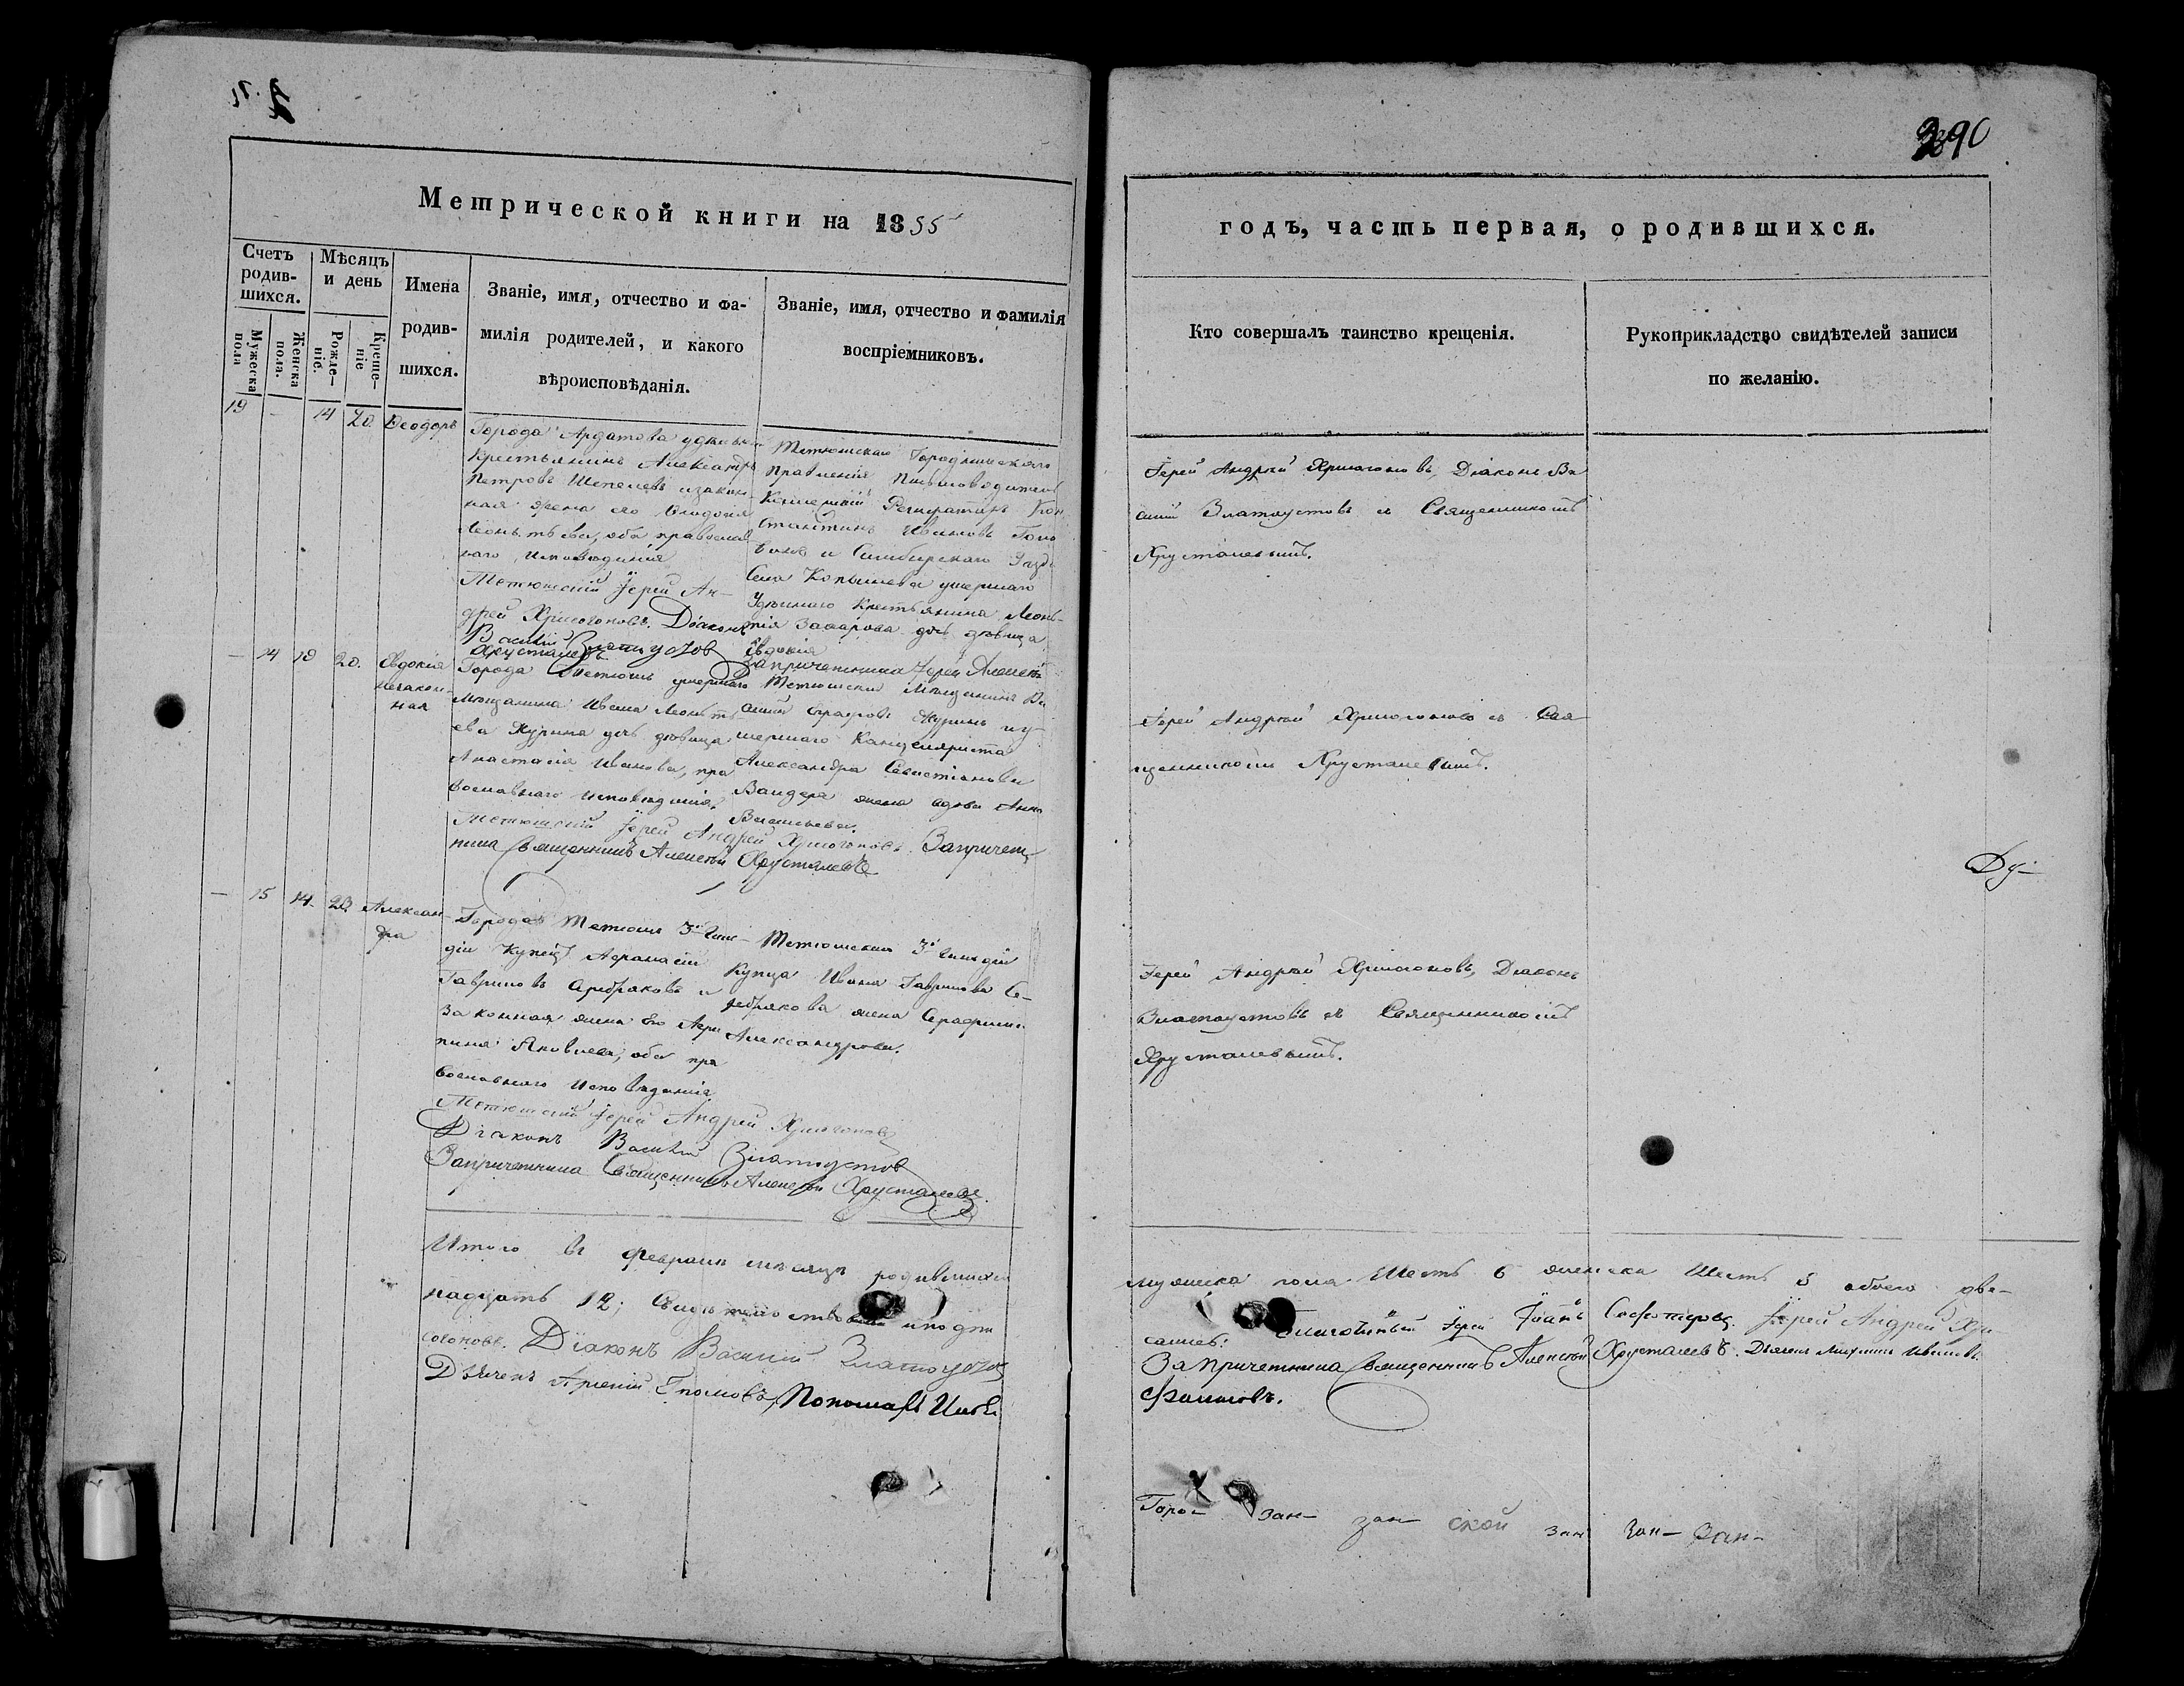 290
Метрической книги на 1855
годъ, часть первая, о родившихся.
Счетъ родив-шихся.
Мужеска пола
Женска пола.
Мѣсяцъ и день
Рожде-ніе.
Креще-ніе
Имена
родив-
шихся.
Званіе, имя, отчество и фа-
милія родителей, и какого
вѣроисповѣданія.
Званіе, имя, отчество и фамилія
воспріемниковъ.
Кто совершалъ таинство крещенія.
Рукоприкладство свидѣтелей записи
по желанію.
19 - 14 20 Ѳеодоръ
Города Ардатова удѣльный
Крестьянинъ Александръ
Петровъ Шепелевъ и закон-
ная жена его
Леонтьева, оба православ
наго исповѣданія
Тетюшскій Іерей Ан-
дрей Хрисогоновъ. Діаконъ
Василій Златоустов
Хрусталевъ
Тетюшскаго Городническаго
Правленія Письмоводитель
Коллежскій Регистраторъ Кон
стантинъ Ивановъ
и Симбирскаго Уѣзда
Села Копышевки умершаго
Удѣльнаго Крестьянина Леон-
тія Захарова дочь дѣвица
Евдокія
За причетника Іерей Алексѣй
Іерей Андрей Хрисогоновъ, Діаконъ Ва
силій Златоустовъ съ Священникомъ
Хрусталевымъ.
- 14 19 20. Евдокія
незакон-
ная
Города Тетюшъ умершаго
мѣщанина Ивана Леонть
ева Журина дочь дѣвица
Анастасія Иванова, пра
вославнаго исповѣданія.
Тетюшскій Іерей Андрей Хрисогоновъ. За причет
ника Священникъ Алексѣй Хрусталевъ
Тетюшскій Мѣщанинъ Ва
силій Журинъ и у-
мершаго Канцеляриста
Александра Севастіанова
жена вдова Анна
Васильева.
Іерей Андрей Хрисогоновъ съ Свя
щенникомъ Хрусталевымъ.
Ду-
- 15 14 23 Алексан-
дра
Города Тетюшъ 3й Гиль-
діи Купецъ Афанасій
Гавриловъ Серебряковъ и
Законная жена Его Агри
пина Яковлева, оба пра
вославнаго исповѣданія
Тетюшскій Іерей Андрей Хрисогоновъ
Діаконъ Василій Златоустов
За причетника Священникъ Алексѣй Хрусталевъ.
Тетюшскаго 3й Гильдіи
Купца Ивана Гаврилова Се-
ребрякова жена Серафима
Александрова.
Іерей Андрей Хрисогоновъ, Діаконъ
Златоустовъ съ Священникомъ
Хрусталевымъ.
Итого въ Февралѣ мѣсяцѣ родившихся
мужеска пола Шесть 6 женска Шесть 6 обоего две-
надцать 12; Свидѣтельствовалъ и подпи
салъ: Благочинный Іерей Іоаннъ Сафотеровъ. Іерей Андрей Хри
согоновъ. Діаконъ Василій Златоустов
За причетника Священникъ Алексѣй Хрусталевъ. Дьячекъ
Дьячекъ Арсеній Громовъ, Пономарь
Горо- зан- зан- ской зан зан- зан-